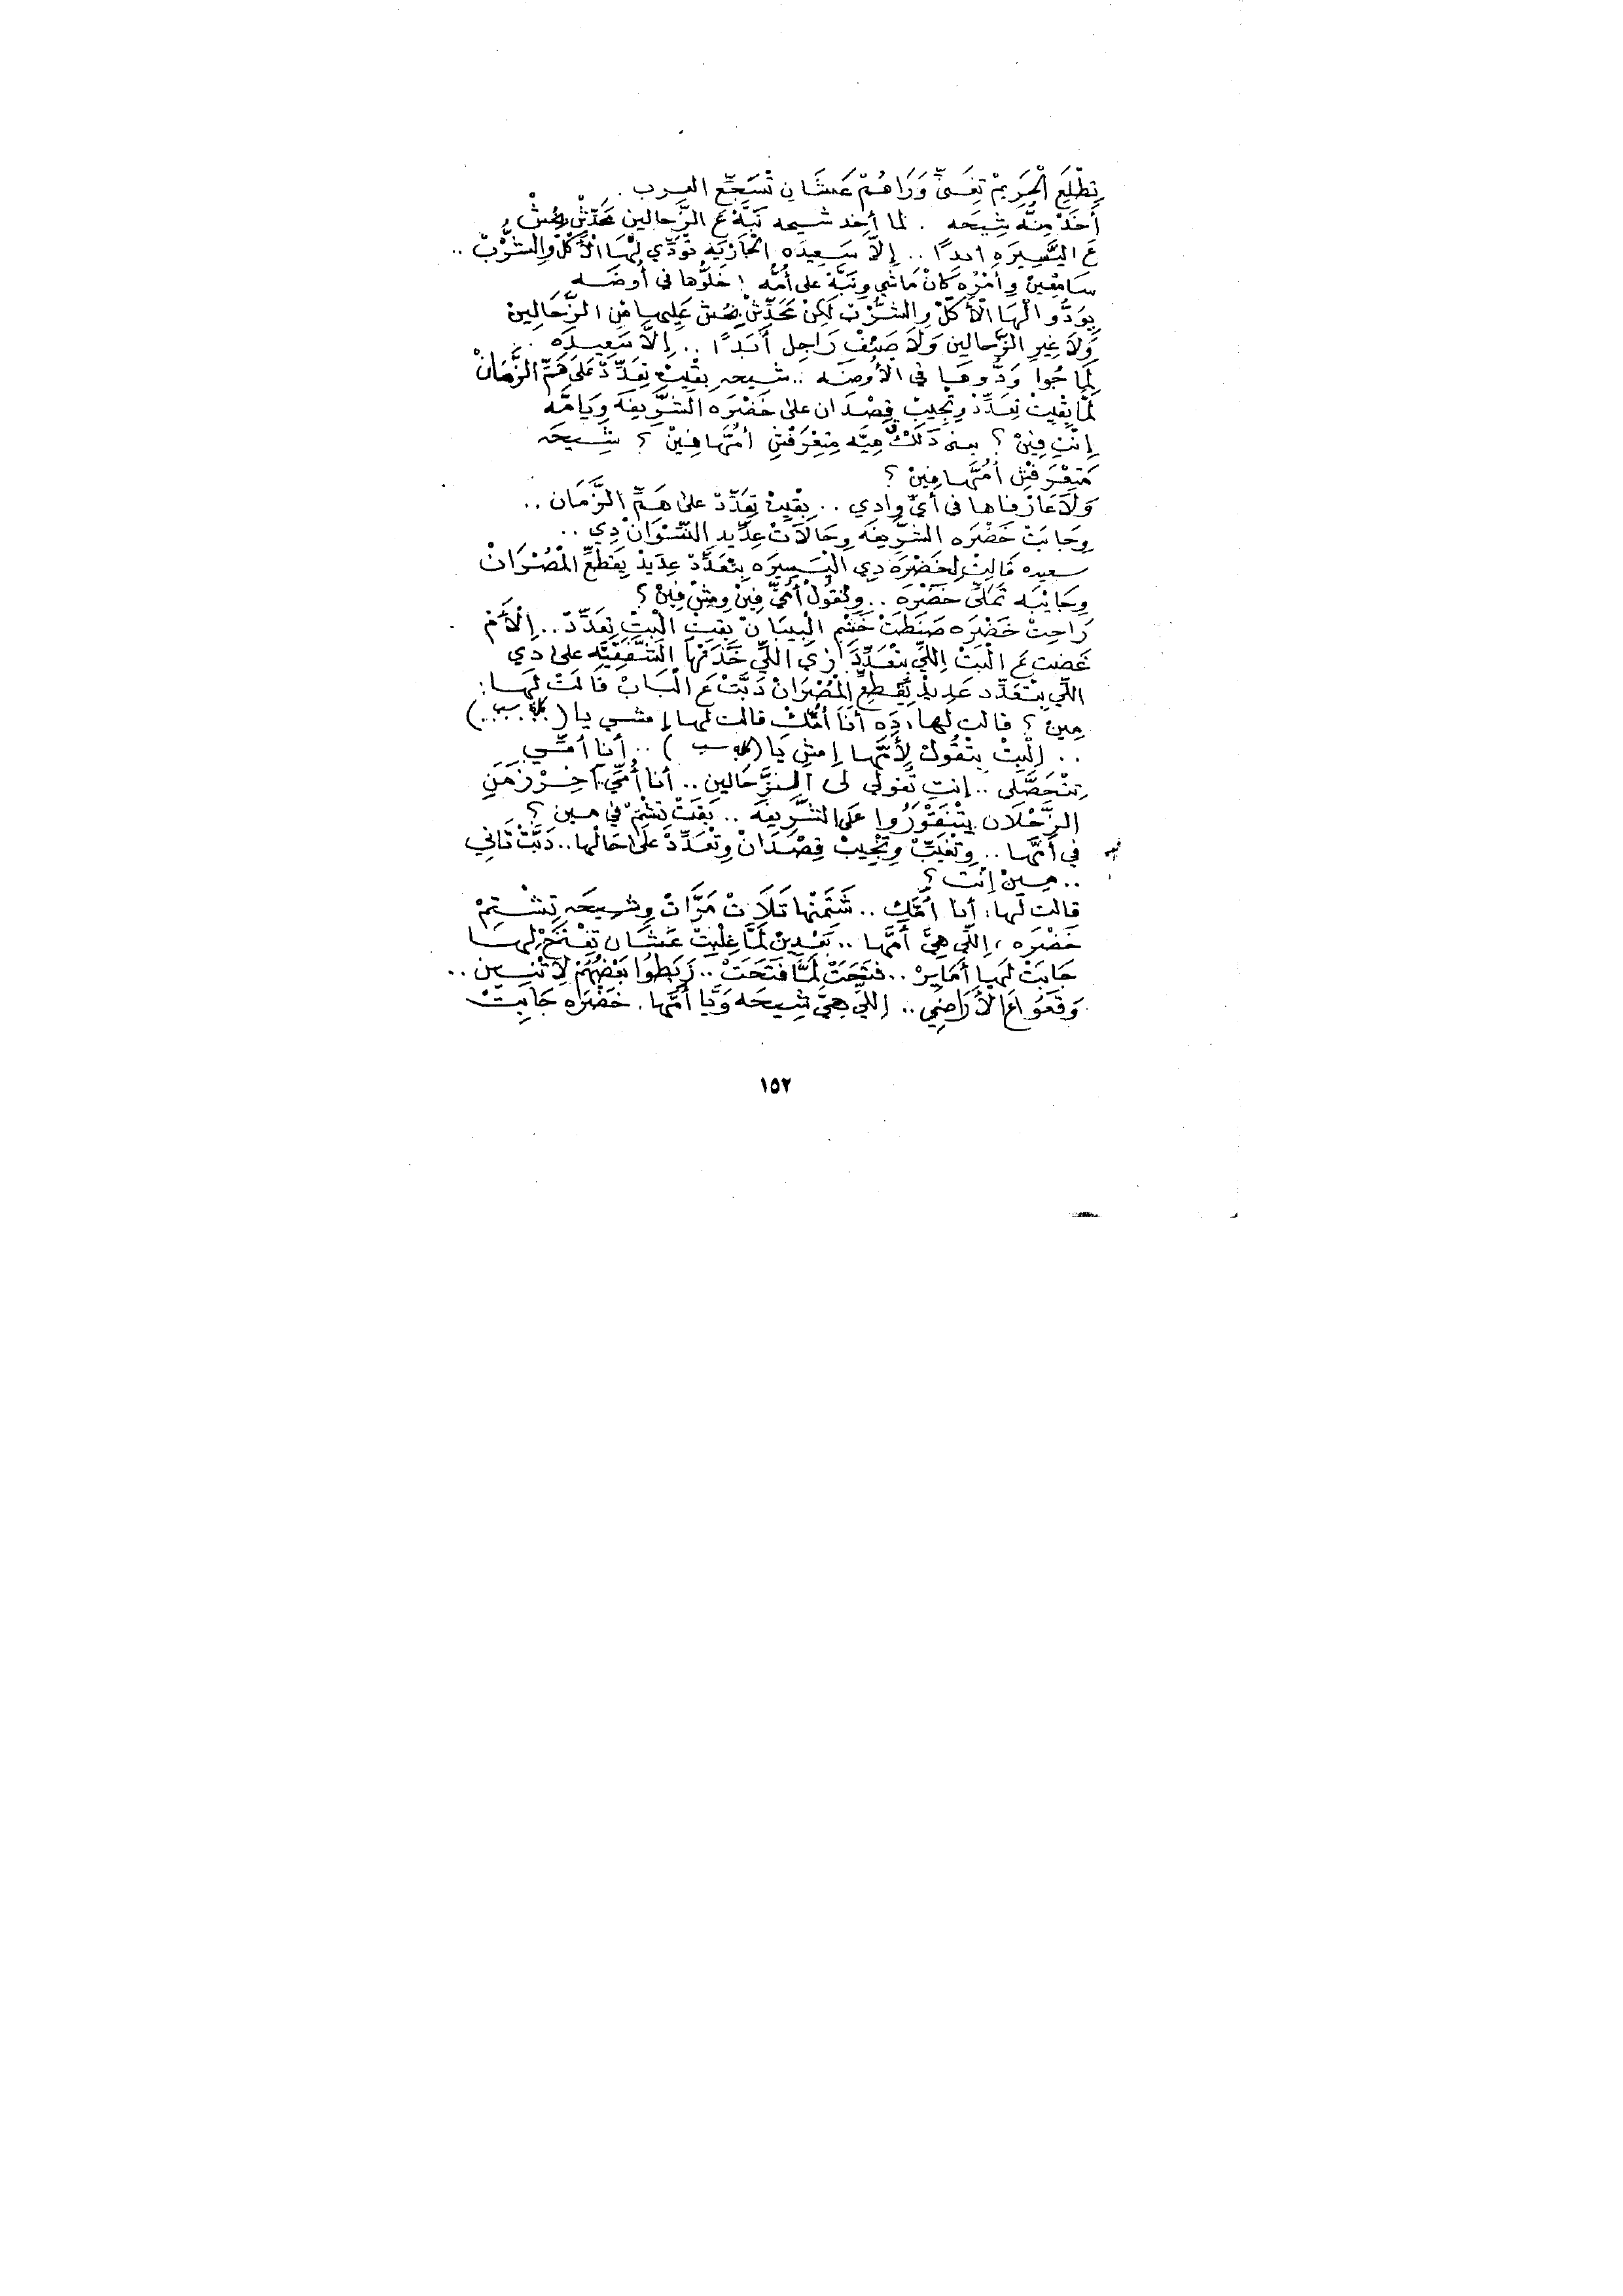 تِطْلَعِ الْحَرِيمْ تِغَنِّي وَرَاهُمْ عَشَانِ تْشَجِّعِ العرب .
أَخَدْ مِنُّهْ شِيحَه . لما أخد شيحه نَبَّهْ عَ الزَّحالين مَحَدِّشْ يخُشْ
عَ اليَسِيرَه ابدًا .. إلاَّ سَعِيدَه الْجَازْيَه تْوَدِّي لْهَا الْأَكْلْ والشُّرْبْ ..
سَامْعِينْ وِأمْرُه كَانْ مَاشِي ونَبَّهْ على أُمُّه ! خَلُّوها في أُوضَه
يِوَدُّوا لْهَا الْأَكْلْ والشُّرْبْ لَكِنْ مَحَدِّشْ يخُشْ عَلِيها مِن الزَّحَالِينْ
وَلاَ غِيرِ الزَّحالين وَلاَ صِنْفْ رَاجِل أَبَدًا .. إلاَّ سَعِيدَه ..
لَمَّا جُوا وَدُّوهَا في الأُوضَه .. شيحه بِقْيِتْ تِعَدِّدْ عَلَى هَمِّ الزَّمَانْ
لَمَّا بِقْيِتْ تِعَدِّدْ وِتْجِيبْ قِصْدَان على خَضْرَه الشَّرِيفَه وِيَامَّه
إِنْتِ فِينْ ؟ بعد ذَلِكْ هِيَّه مِتِعْرَفْشِ أمَّهَا فِينْ ؟ شِيحَه
مَتِعْرَفْشِ أُمَّهَا مِينْ ؟
وَلاَ عَارْفَاها فى أَيِّ وادِي .. بِقْيِتْ تِعَدِّدْ على هَمِّ الزَّمَان ..
وِجَابَتْ خَضْرَه الشَّرِيفَه وِحَالاَتْ عِدِّيد النِّسْوَانْ دِي ..
سعيده قَالِتْ لِخَضْرَه دِي الْيَسِيرَه بِتْعَدِّدْ عِدِيدْ يِقَطَّعِ الْمُصْرَانْ
وِجَايْبَه تَمَلِّي خَضْرَه .. وِتْقُولْ أُمِّي فِينْ ومِشْ فِينْ ؟
رَاحِتْ خَضْرَه صَنَّطَتْ خَشْمِ الْبِيبَانْ بقيت الْبِتِّ تِعَدِّدْ .. اِلْأُمْ
غَصْبِ عَ الْبِتْ اِللِّي بِتْعَدِّدْ زي اللي خَدَتْهَا الشَّفَقِيَّه على دِي
اللِّي بِتْعَدِّد عَدِيدْ يِقَطَّعِ الْمُصْرَانْ دَبَّتْ عَ الْبَابْ قَالَتْ لَهَا :
مِينْ ؟ قالت لها ، دَه أنَا أُمِّكْ قالت لها إمشي يا ( كلمة سب .. )
.. اِلْبِتْ بِتْقُولْ لِأُمَّهَا إمشِي يَا ( كلمة سب ) .. أنا أمِّي
تِتْحَصَّلِي .. إنتِ تْقولي لي الزَّحَالين .. أنا أُمِّي آخِرْ زَمَنِ
الرِّجْلاَن بِتْتَقْوَرُوا عَلَى الشَّرِيفَه .. بَقَتْ تِشْتِمْ في مين ؟
في أُمَّهَا .. وِتْغَنِّي وِتْجِيبْ قِصْدَانْ وِتْعَدِّدْ عَلَى حَالْها .. دَبَّتْ تَانِي
.. مِينْ إنت ؟
قالت لها : أنا أُمِّكِ .. شَتَمَتْهَا تَلَاتْ مَرَّاتْ وِشِيحَه تِشْتِمْ
خَضْرَه ، اِللِّي هِيَّ أُمَّها .. بَعْدِينْ لَمَّا غِلْبِتْ عَشَانِ تِفْتَحْ لها
جَابَتْ لَهَا أَمَايِرْ .. فَتَحَتْ لَمَّا فَتَحَتْ .. رَبَطُوا بَعْضُهُمْ لِاتْنِين ..
وَقَعُوا عَ الْأَرَاضِي .. اِللِّي هِيَّ شِيحَه وَيَّا أُمَّها . خَضْرَه جَابِتْ
١٥٢